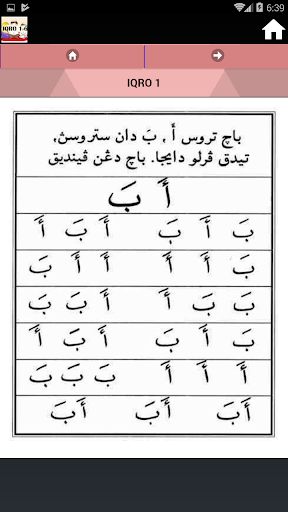 IQRO 1-6
6:39
IQRO 1
باچ تروس أَ ، بَ دان ستروسڽ،
تيدق ڤرلو دايجا. باچ دڠن ڤينديق
أَ بَ
بَ أَ بَ أَ بَ أَ
بَ أَ أَ أَ أَ بَ
بَ بَ أَ أَ بَ بَ
بَ أَ بَ أَ بَ أَ
أَ أَ أَ بَ بَ بَ
أَبَ أَبَ أَبَ